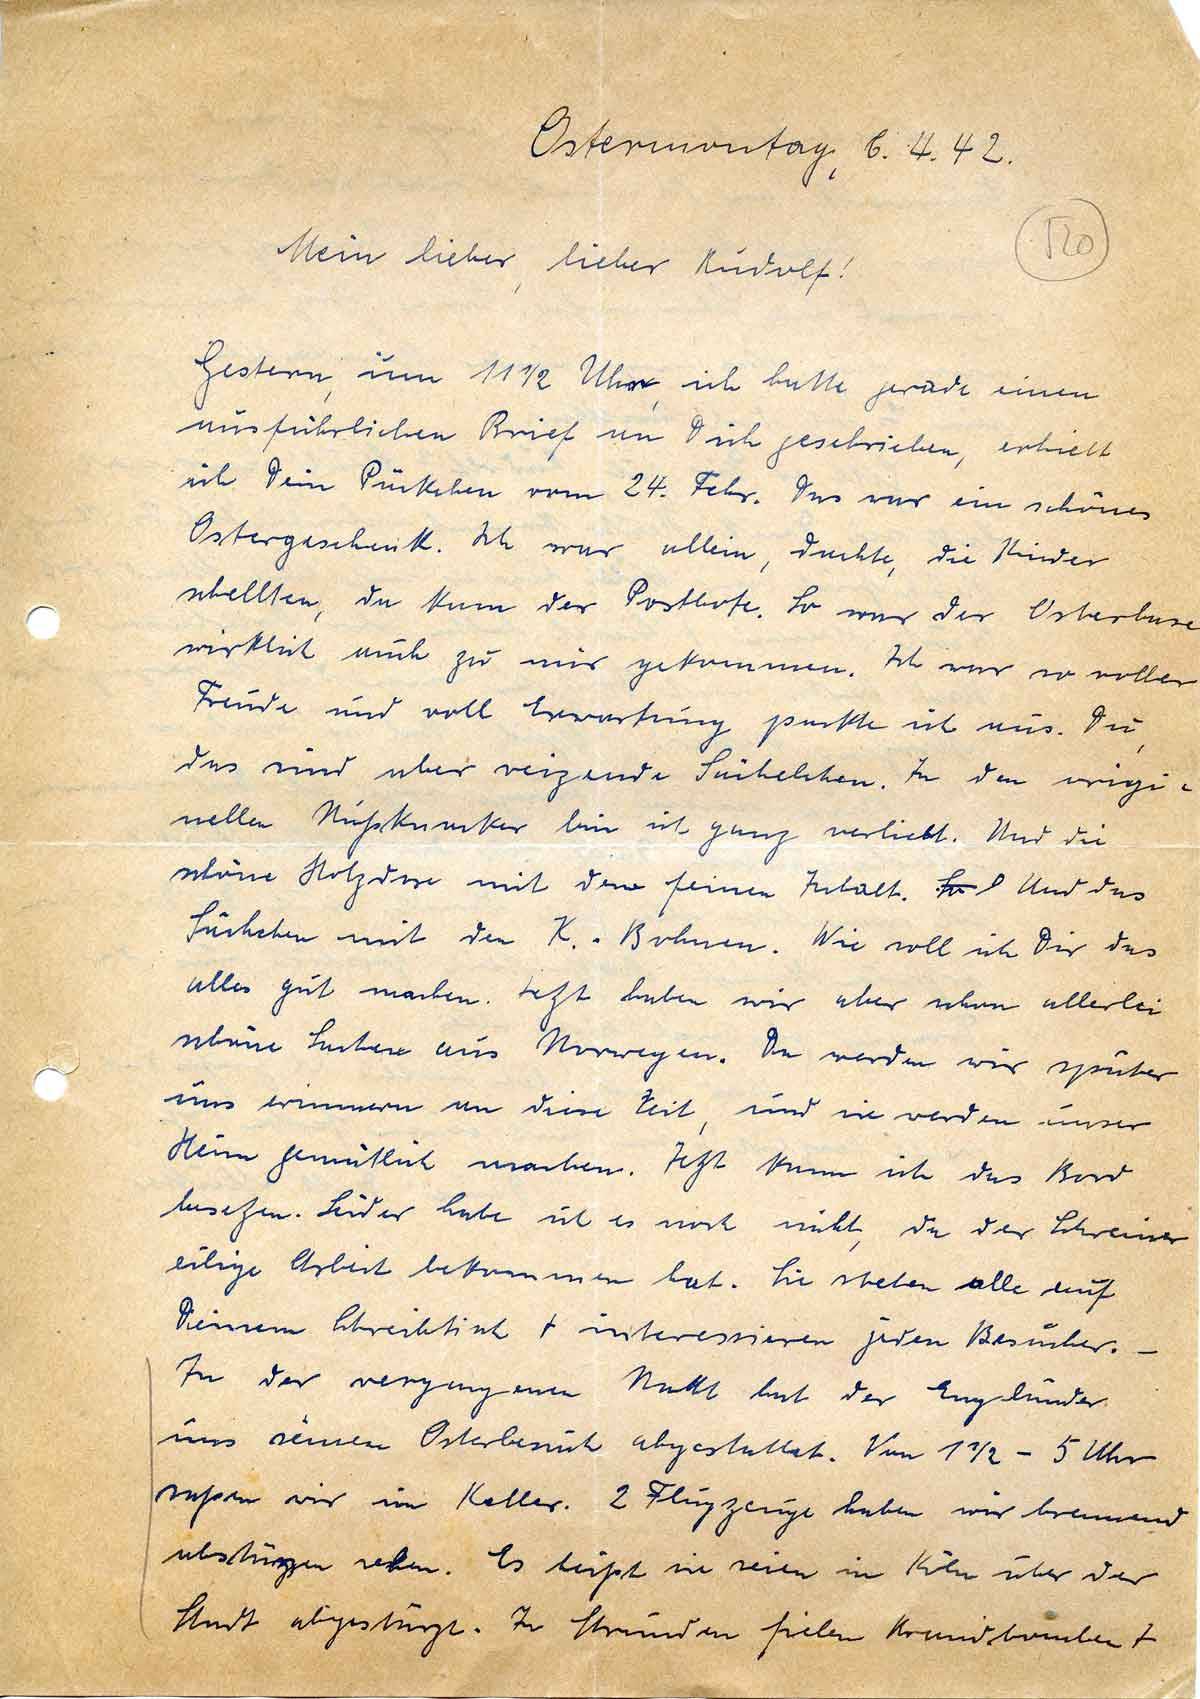 Ostermontag, 6. 4. 42.
520
Mein lieber, lieber Rudolf!
Gestern, um 11 1/2 Uhr, ich hatte gerade einen
ausführlichen Brief an Dich geschrieben, erhielt
ich Dein Päckchen vom 24. Febr. Das war ein schönes
Ostergeschenk. Ich war allein, dachte, die Kinder
schellten, da kam der Postbote. So war der Osterhase
wirklich auch zu mir gekommen. Ich war so voller
Freude und voll Erwartung packte ich aus. Du,
das sind aber reizende Sächelchen. In den origi-
nellen Nußknacker bin ich ganz verliebt. Und die
schöne Holzdose mit dem feinen Inhalt. Und das
Säckchen mit den K.-Bohnen. Wie soll ich Dir das
alles gut machen. Jetzt haben wir aber schon allerlei
schöne Sachen aus Norwegen. Da werden wir später
uns erinnern an diese Zeit, und sie werden unser
Heim gemütlich machen. Jetzt kann ich das Bord
besetzen. Leider habe ich es noch nicht, da der Schreiner
eilige Arbeit bekommen hat. Sie stehen alle auf
Deinem Schreibtisch + interessieren jeden Besucher. –
In der vergangenen Nacht hat der Engländer
uns seinen Osterbesuch abgestattet. Von 1 1/2 – 5 Uhr
saßen wir im Keller. 2 Flugzeuge haben wir brennend
abstürzen sehen. Es heißt sie seien in Köln über der
Stadt abgestürzt. In Strunden fielen Brandbomben +